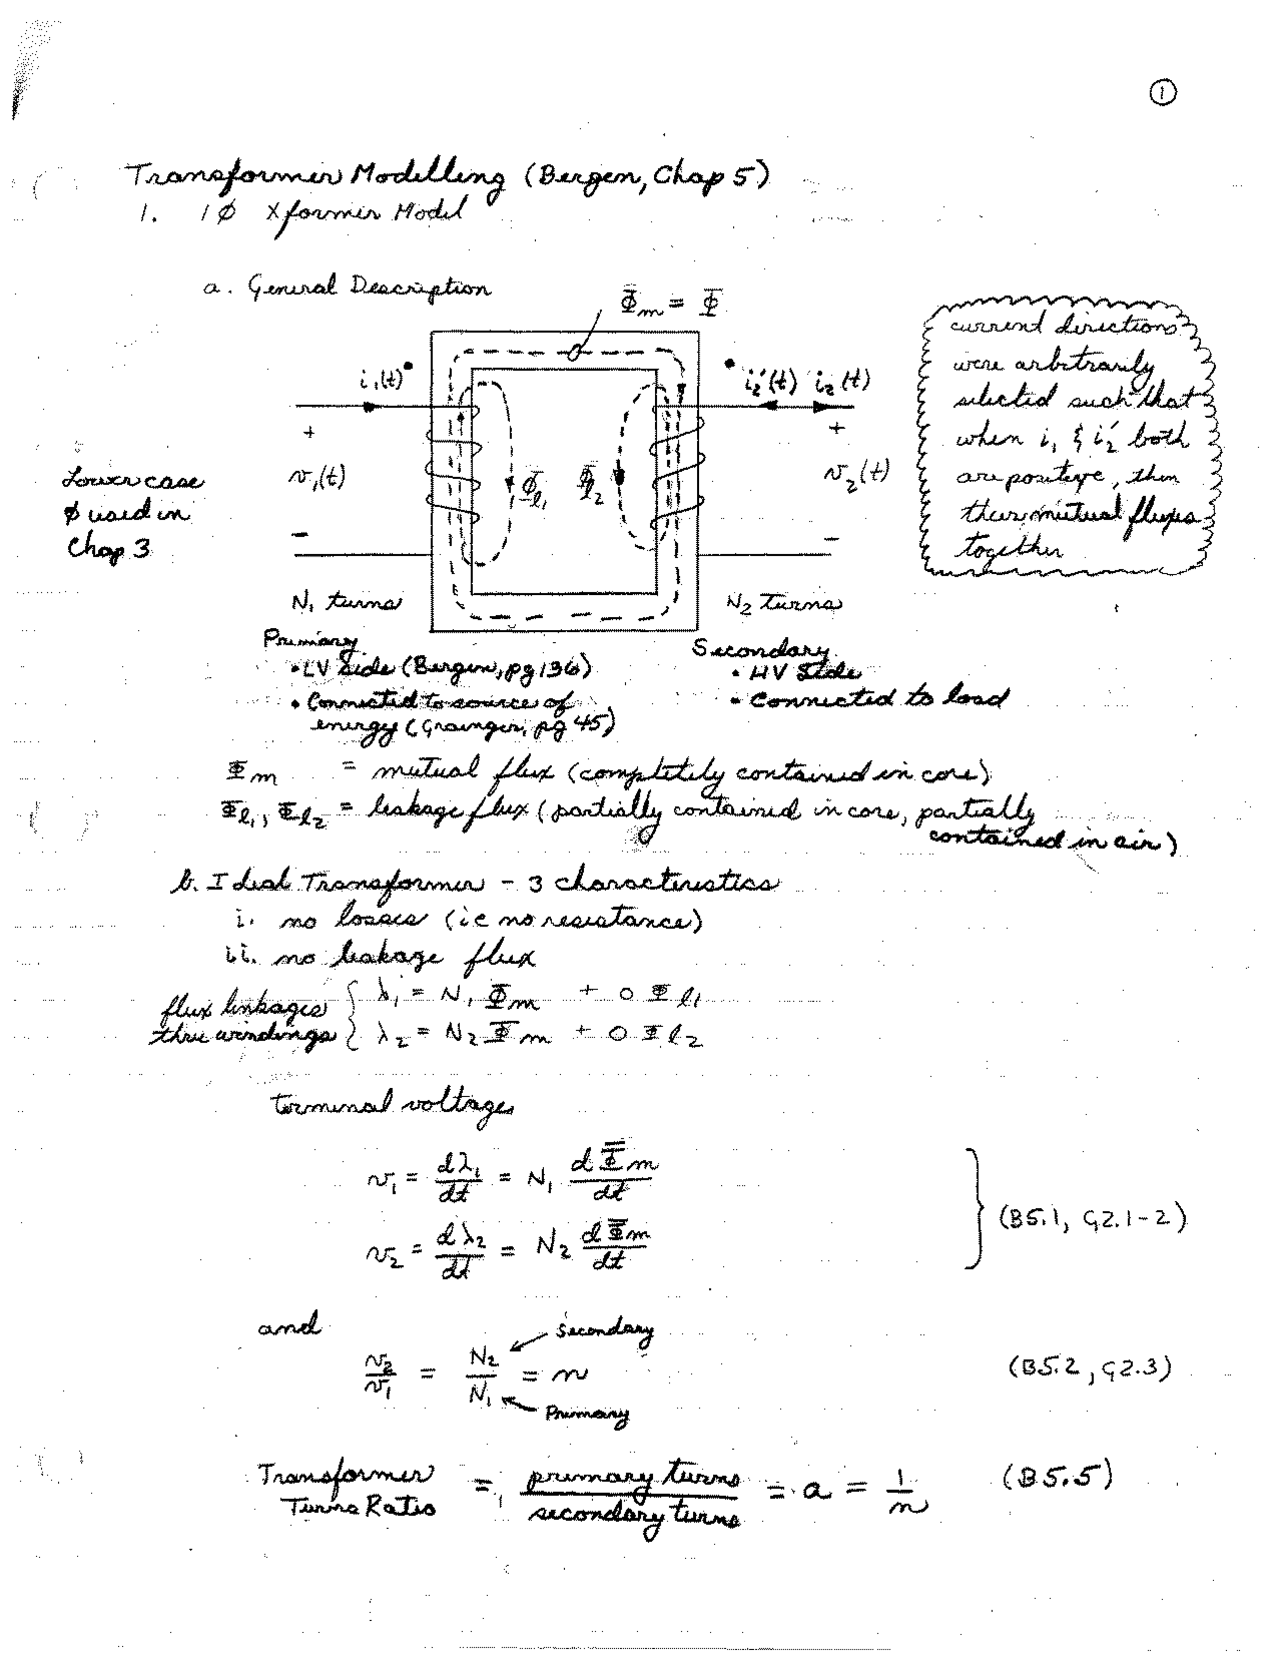 ①
Transformer Modelling (Bergen, Chap 5)
1. 1ϕ Xformer Model
a. General Description
Φm = Φ
i1(t)
i2'(t) i2(t)
+
v1(t)
-
Φl1
Φl2
+
v2(t)
-
current directions
were arbitrarily
selected such that
when i1 & i2' both
are positive, then
their mutual fluxes
together
Lower case
ϕ used in
Chap 3
N1 turns
N2 turns
Primary
• LV Side (Bergen, pg 136)
• Connected to source of
energy (Grainger, pg 45)
Secondary
• HV Side
• Connected to load
Φm = mutual flux (completely contained in core)
Φl1, Φl2 = leakage flux (partially contained in core, partially
contained in air)
b. Ideal Transformer - 3 characteristics
i. no losses (ie no resistance)
ii. no leakage flux
flux linkages
thru windings
λ1 = N1 Φm + 0 Φl1
λ2 = N2 Φm + 0 Φl2
terminal voltages
v1 = dλ1/dt = N1 dΦm/dt
v2 = dλ2/dt = N2 dΦm/dt
(B5.1, G2.1-2)
and
v2/v1 = N2/N1 = n
Secondary
Primary
(B5.2, G2.3)
Transformer
Turns Ratio
= primary turns/secondary turns = a = 1/n
(B5.5)